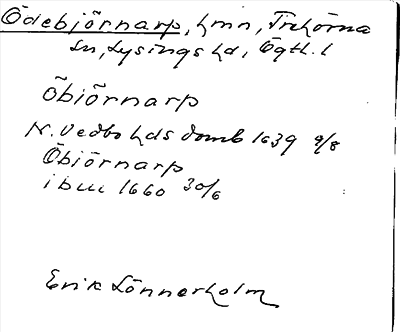 Ödebjörnarp, hmn, Trehörna
sn, Lysings hd, Ögtl. l
Öbjörnarp
N. Vedbo hds domb 1639 9/8
Öbjörnarp
ibm 1660 30/6
Erik Lönnerholm